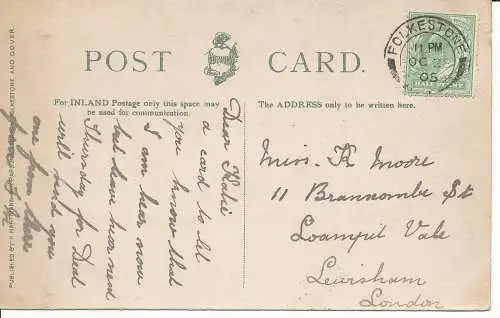 POST CARD.
For INLAND Postage only this space may
be used for communication.
The ADDRESS only to be written here.
FOLKESTONE
11 PM
OC 2
05
HALF PENNY
Dear Katie
a card to let
you know that
I am hear now
but leave hear next
Thursday for Deal
will send you
one from there
from F. M
Miss. K Moore
11 Branscombe St
Loampit Vale
Lewisham
London
PUBLISHED BY
FOLKESTONE AND DOVER.